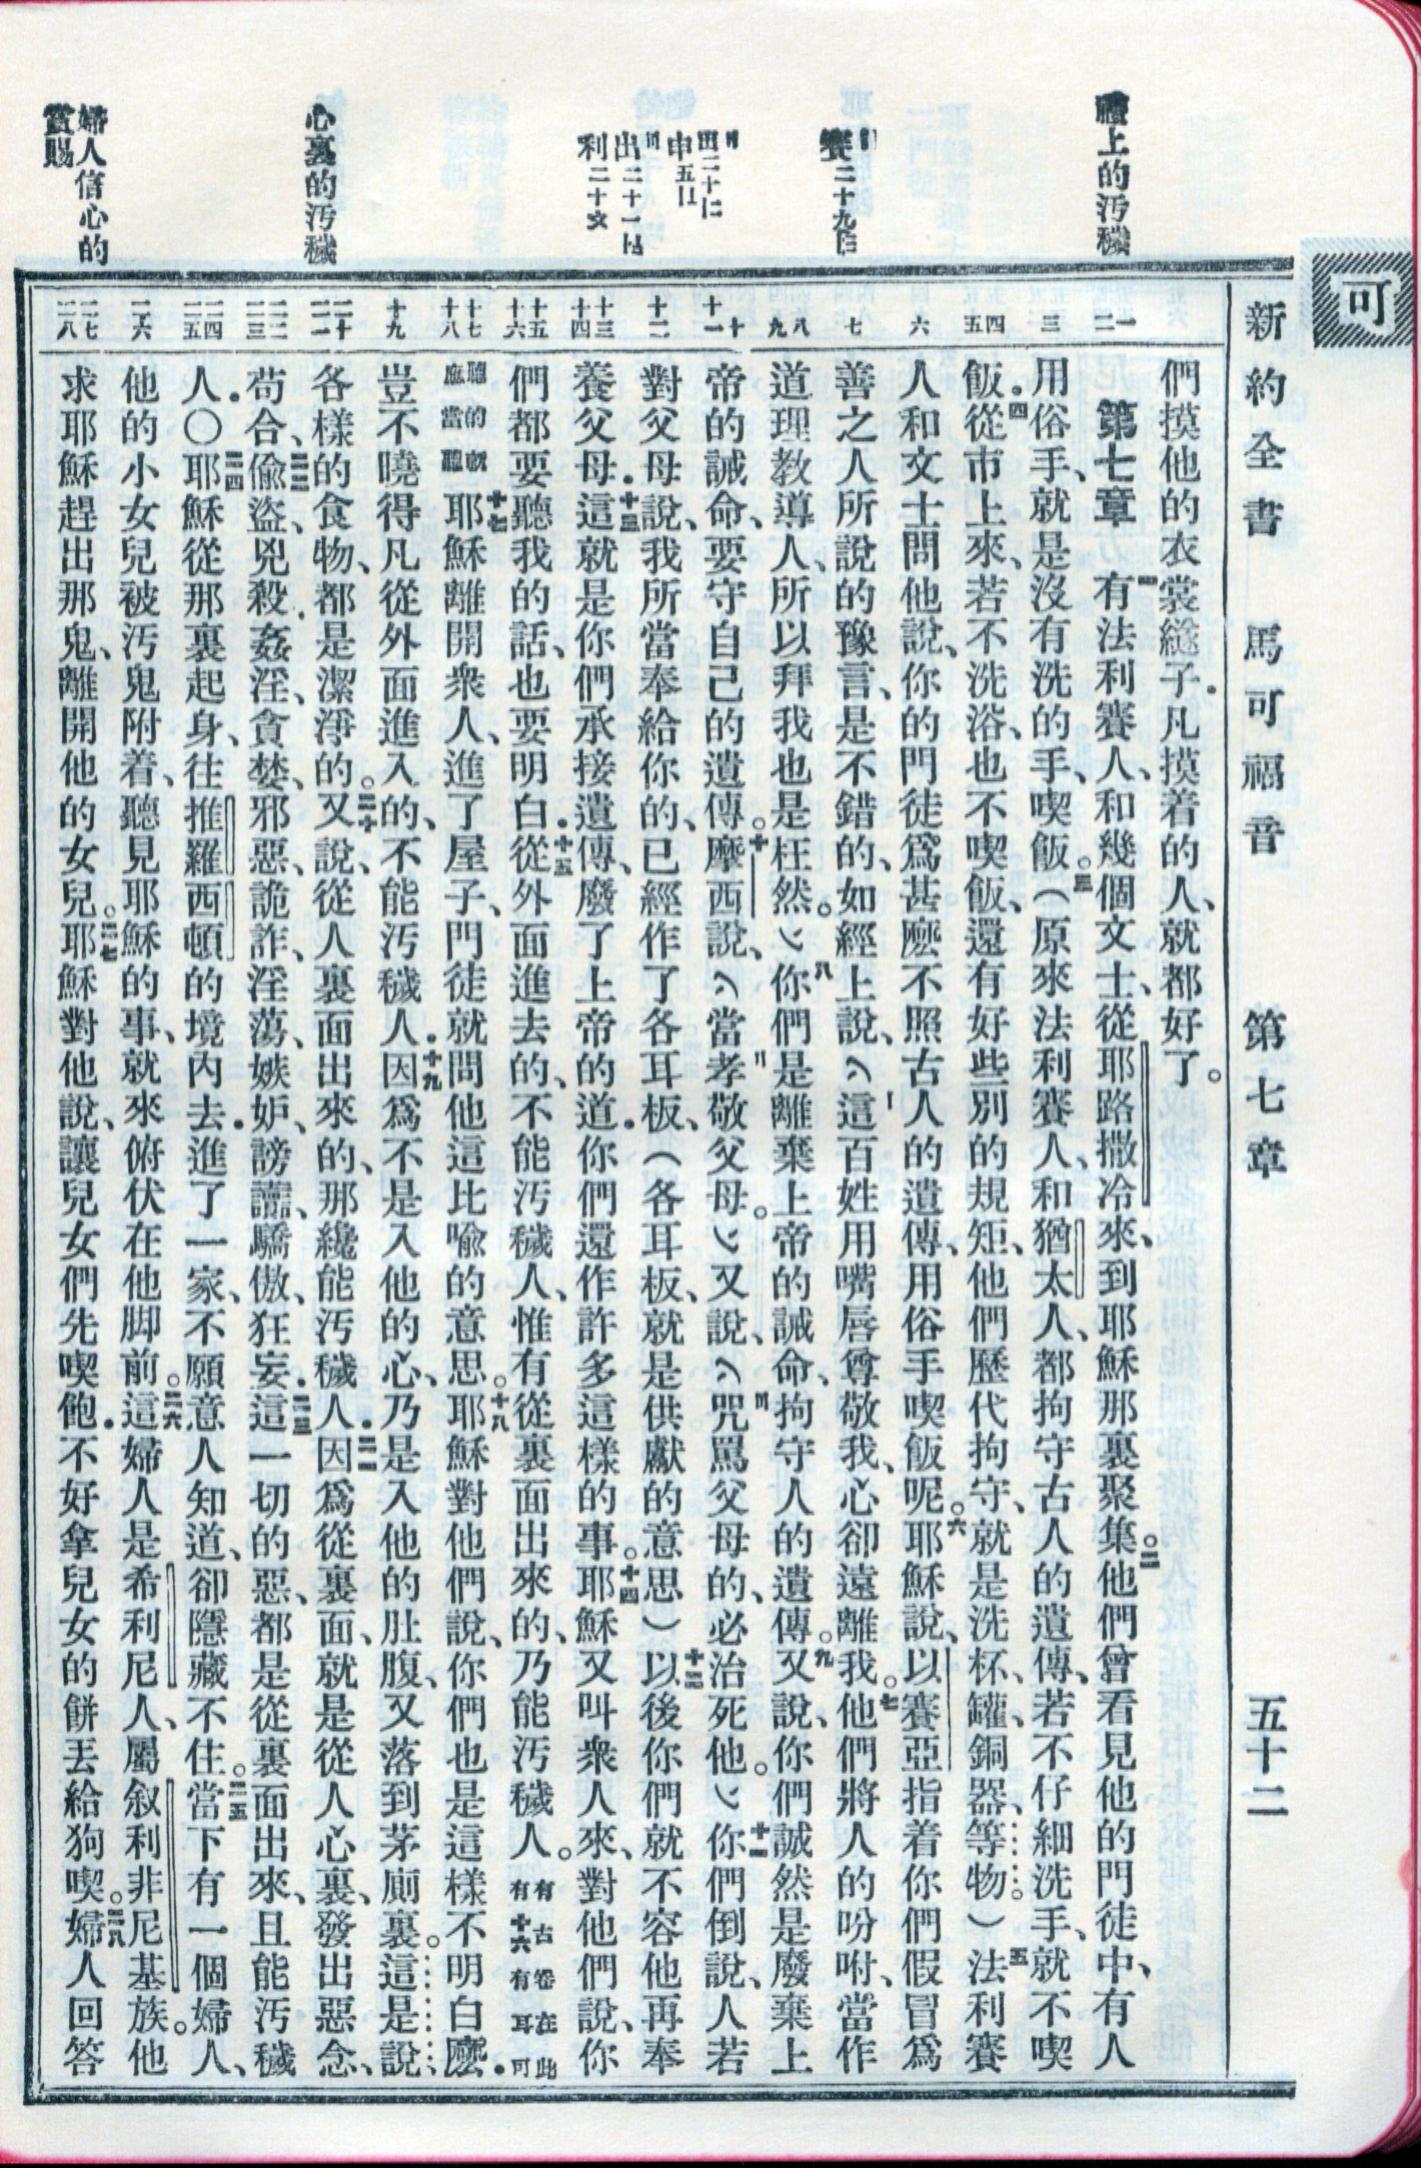 可
新約全書 馬可福音 第七章 五十二
禮上的汚穢
心裏的汚穢
婦人信心的
賞賜
們摸他的衣裳繸子．凡摸着的人、就都好了。
第七章 一有法利賽人、和幾個文士、從耶路撒冷來、到耶穌那裏聚集。二他們曾看見他的門徒中、有人
用俗手、就是沒有洗的手、喫飯。三（原來法利賽人、和猶太人、都拘守古人的遺傳、若不仔細洗手、就不喫
飯．四從市上來、若不洗浴、也不喫飯、還有好些別的規矩、他們歷代拘守、就是洗杯、罐、銅器、等物。）五法利賽
人和文士問他說、你的門徒爲甚麽不照古人的遺傳、用俗手喫飯呢。六耶穌說、以賽亞指着你們假冒爲
善之人所說的豫言、是不錯的、如經上說、這百姓用嘴唇尊敬我、心卻遠離我。七他們將人的吩咐、當作
道理教導人、所以拜我也是枉然。八你們是離棄上帝的誡命、拘守人的遺傳。九又說、你們誠然是廢棄上
帝的誡命、要守自己的遺傳。十摩西說、當孝敬父母。又說、咒罵父母的、必治死他。十一你們倒說、人若
對父母說、我所當奉給你的、已經作了各耳板、（各耳板、就是供獻的意思）十二以後你們就不容他再奉
養父母．十三這就是你們承接遺傳、廢了上帝的道．你們還作許多這樣的事。十四耶穌又叫衆人來、對他們說、你
們都要聽我的話、也要明白．十五從外面進去的、不能汚穢人、惟有從裏面出來的、乃能汚穢人。有古卷在此有十六有耳可
聽的就應當聽 十七耶穌離開衆人、進了屋子、門徒就問他這比喩的意思。十八耶穌對他們說、你們也是這樣不明白麽．
豈不曉得凡從外面進入的、不能汚穢人．十九因爲不是入他的心、乃是入他的肚腹、又落到茅廁裏。這是說、
各樣的食物、都是潔淨的。二十又說、從人裏面出來的、那纔能汚穢人．二一因爲從裏面、就是從人心裏、發出惡念、
苟合、二二偷盜、兇殺、姦淫、貪婪、邪惡、詭詐、淫蕩、嫉妒、謗讟、驕傲、狂妄．二三這一切的惡、都是從裏面出來、且能汚穢
人．〇二四耶穌從那裏起身、往推羅西頓的境內去．進了一家、不願意人知道、卻隱藏不住。二五當下有一個婦人、
他的小女兒被汚鬼附着、聽見耶穌的事、就來俯伏在他脚前。二六這婦人是希利尼人、屬叙利非尼基族。他
求耶穌趕出那鬼、離開他的女兒。二七耶穌對他說、讓兒女們先喫飽．不好拿兒女的餅丟給狗喫。二八婦人回答